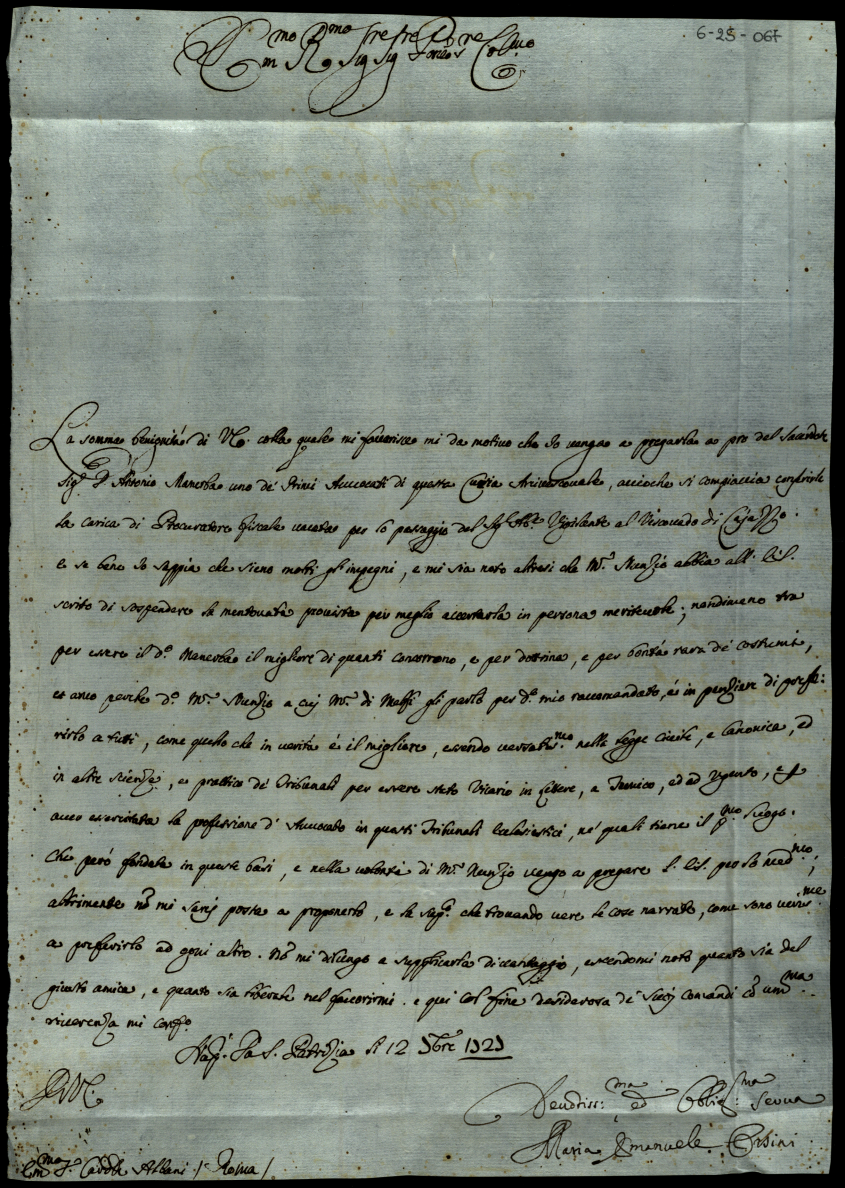 6-25-067
Em.mo R.mo Sig.re Sig.re P.ne Col.mo
La somma benignità di V.E. colla quale mi favorisce mi da motivo che Io venga a pregarla a pro del Sacerdote
Sig.r D. Antonio Manerba uno de' Primi Avvocati di questa Curia Arcivescovale, accioche si compiaccia conferirli
la carica di Procuratore fiscale vacata per lo passaggio del Sig.r Ab.e Vigilante al Vescovado di Cajazzo.
e se bene Io sappia che sieno molti gl'impegni, e mi sia noto altresì che M.r Nunzio abbia all'
scrito di sospendere la mentovata provista per meglio accertarla in persona meritevole; nondimeno tra
per essere il d.o Manerba il migliore di quanti concorrono, e per dottrina, e per bontà rara de' costumi,
et anco perche d.o M.r Nunzio a cui M.r di Melfi gli parlò per d.o mio raccomandato, è in pensiere di prefe:
rirlo a tutti, come quello che in verità è il migliore, essendo versatis.mo nelle legge Civile, e Canonica, ed
in altre scienze, e prattico de' Tribunali per essere stato Vicario in Lettere, a Trivico, ed ad Ugento, e p
avere esercitata la professione d'Avvocato in questi Tribunali Eclesiastici, ne' quali tiene il p.mo luogo.
Che però fondata in queste basi, e nella volontà di M.r Nunzio vengo a pregare per lo med.mo;
altrimente nõ mi sarej posta a proporlo, e la sup.co che trovando vere le cose narrate, come sono veris.me
a preferirlo ad ogni altro. Nõ mi dilungo a supplicarla di vantaggio, essendomi noto quanto sia del
giusto amica, e quanto sia liberale nel favorirmi. e qui col fine desiderosa de' Suoj comandi cõ um.ma
riverenza mi conf.o
Nap. Da S. Patrizia li 12 9bre 1729
D.V.E.
Devotiss:ma ed Oblig:ma Serva
Maria Emanuele Orsini
Em.mo S.r Card.le Albani /: Roma /